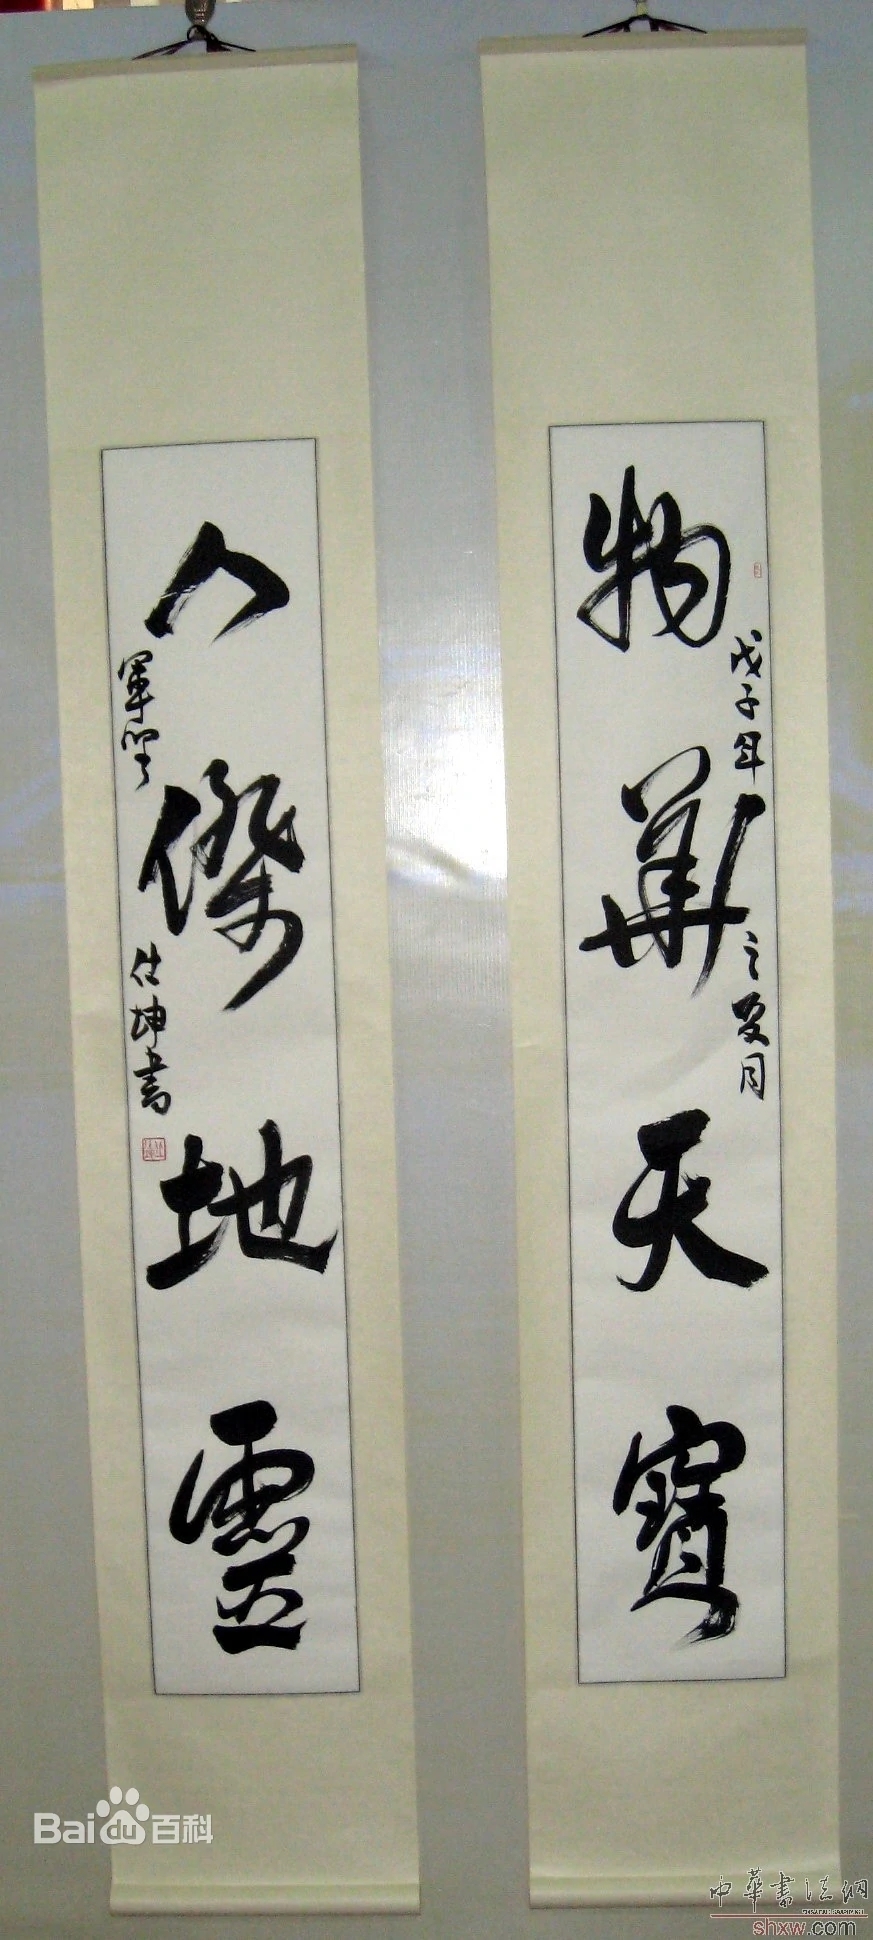 物華天寶
戊子年之夏月
人傑地靈
軍堅
仕坤書
Baidu百科
中華書法網
shxw.com